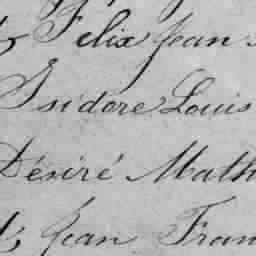 Felix Jean
Isidore Louis
Désiré Math
Jean Fran